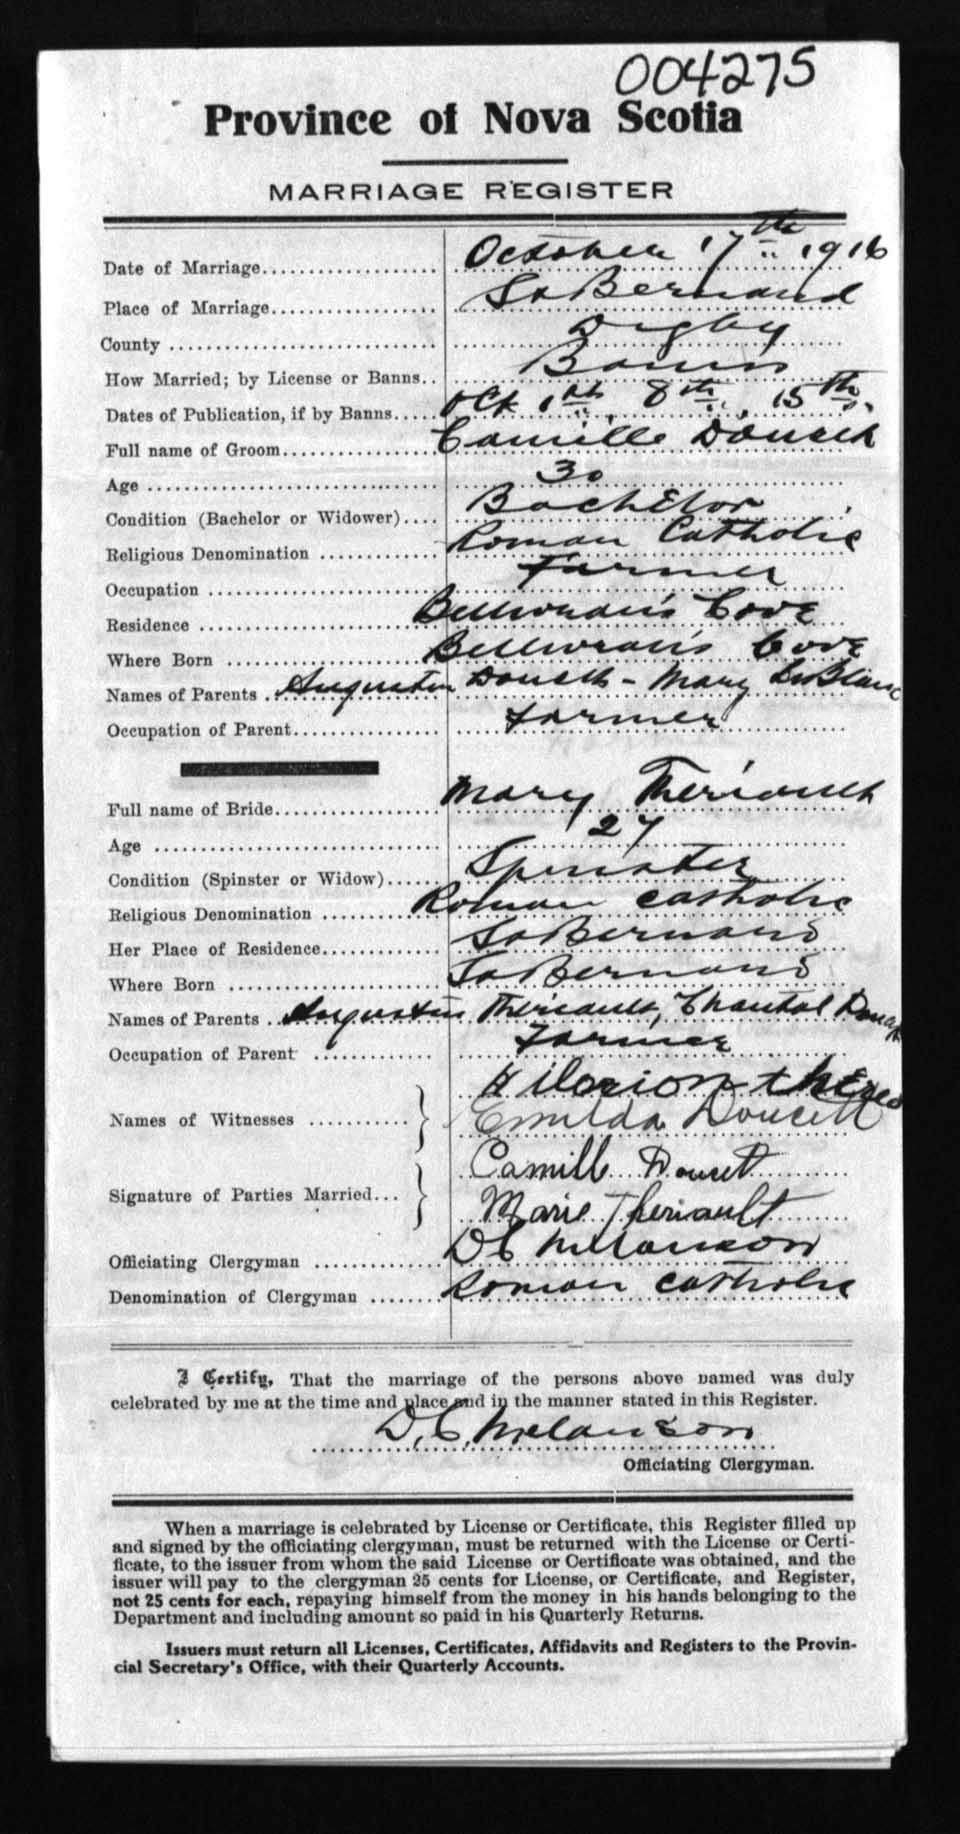 004275
Province of Nova Scotia
MARRIAGE REGISTER
Date of Marriage October 17th 1916
Place of Marriage St Bernard
County Digby
How Married; by License or Banns Banns
Dates of Publication, if by Banns Oct 1st 8th 15th
Full name of Groom Camille Doucett
Age 30
Condition (Bachelor or Widower) Bachelor
Religious Denomination Roman Catholic
Occupation Farmer
Residence Belliveau's Cove
Where Born Belliveau's Cove
Names of Parents Augustin Doucett - Mary LeBlanc
Occupation of Parent Farmer
Full name of Bride Mary Theriault
Age 27
Condition (Spinster or Widow) Spinster
Religious Denomination Roman Catholic
Her Place of Residence St Bernard
Where Born St Bernard
Names of Parents Augustin Theriault, Chantal
Occupation of Parent Farmer
Hilarion
Names of Witnesses Emilda Doucett
Camille Doucet
Signature of Parties Married Marie Theriault
Officiating Clergyman D C Melanson
Denomination of Clergyman Roman Catholic
I Certify, That the marriage of the persons above named was duly
celebrated by me at the time and place and in the manner stated in this Register.
D. C. Melanson
Officiating Clergyman.
When a marriage is celebrated by License or Certificate, this Register filled up
and signed by the officiating clergyman, must be returned with the License or Certi-
ficate, to the issuer from whom the said License or Certificate was obtained, and the
issuer will pay to the clergyman 25 cents for License, or Certificate, and Register,
not 25 cents for each, repaying himself from the money in his hands belonging to the
Department and including amount so paid in his Quarterly Returns.
Issuers must return all Licenses, Certificates, Affidavits and Registers to the Provin-
cial Secretary's Office, with their Quarterly Accounts.